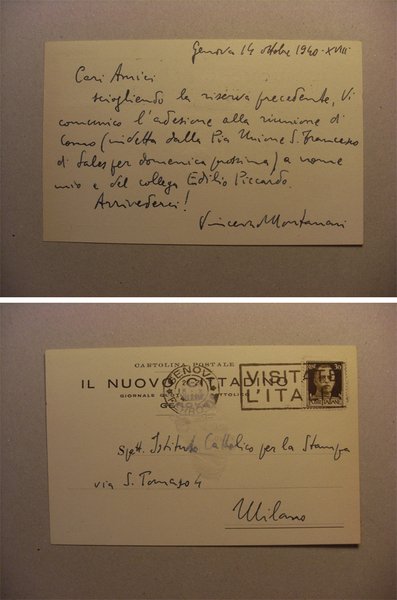 Genova 14 ottobre 1940-XVIII
Cari Amici
sciogliendo la riserva precedente, Vi
comunico l'adesione alla riunione di
Como (indetta dalla Pia Unione S. Francesco
di Sales per domenica prossima) a nome
mio e del collega Edilio Piccardo.
Arrivederci!
Vincenzo Montanari
CARTOLINA POSTALE
IL NUOVO CITTADINO
GIORNALE CATTOLICO
GENOVA
VISITATE
L'ITA
Spett. Istituto Cattolico per la Stampa
via S. Tomaso 4
Milano